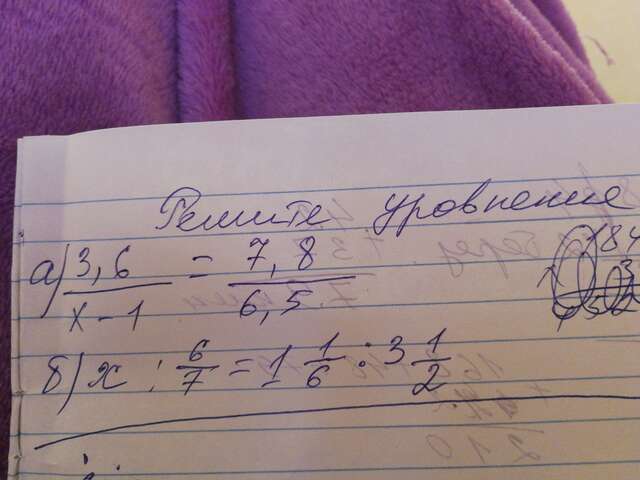 Решите уровнение
а) 3,6 / x - 1 = 7,8 / 6,5
б) x : 6/7 = 1 1/6 : 3 1/2